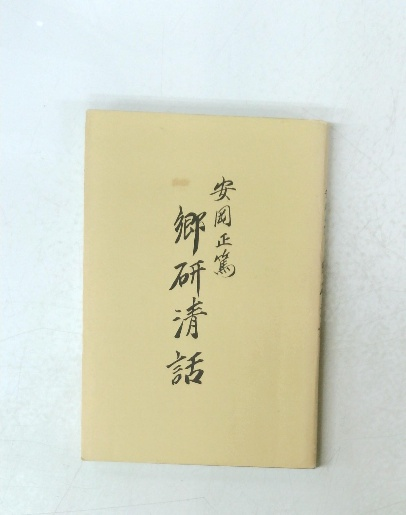 安岡正篤
郷研清話